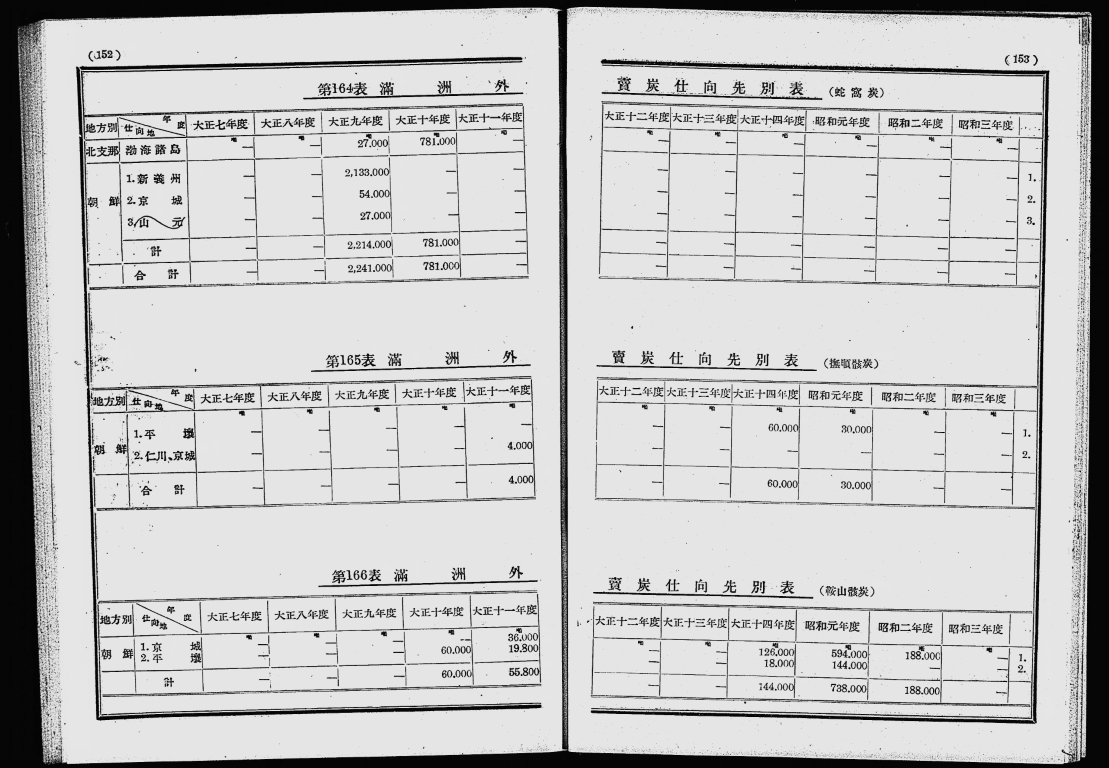 (152)
第164表 滿洲外
地方別 仕向地 年度 大正七年度 大正八年度 大正九年度 大正十年度 大正十一年度
噸 噸 噸 噸 噸
北支那 渤海諸島 — — 27.000 781.000 —
朝鮮
1.新義州 — — 2,133.000 — —
2.京城 — — 54.000 — —
3.山元 — — 27.000 — —
計 — — 2,214.000 781.000 —
合計 — — 2,241.000 781.000 —
第165表 滿洲外
地方別 仕向地 年度 大正七年度 大正八年度 大正九年度 大正十年度 大正十一年度
噸 噸 噸 噸 噸
朝鮮
1.平壤 — — — — —
2.仁川、京城 — — — — 4.000
合計 — — — — 4.000
第166表 滿洲外
地方別 仕向地 年度 大正七年度 大正八年度 大正九年度 大正十年度 大正十一年度
噸 噸 噸 噸 噸
朝鮮
1.京城 — — — — 36,000
2.平壤 — — — 60.000 19.800
計 — — — 60.000 55.800
(153)
賣炭仕向先別表 (蛇窩炭)
大正十二年度 大正十三年度 大正十四年度 昭和元年度 昭和二年度 昭和三年度
噸 噸 噸 噸 噸 噸
— — — — — —
— — — — — — 1.
— — — — — — 2.
— — — — — — 3.
— — — — — —
— — — — — —
賣炭仕向先別表 (撫順骸炭)
大正十二年度 大正十三年度 大正十四年度 昭和元年度 昭和二年度 昭和三年度
噸 噸 噸 噸 噸 噸
— — 60.000 30.000 — — 1.
— — — — — — 2.
— — 60.000 30.000 — —
賣炭仕向先別表 (鞍山骸炭)
大正十二年度 大正十三年度 大正十四年度 昭和元年度 昭和二年度 昭和三年度
噸 噸 噸 噸 噸 噸
— — 126.000 594.000 188.000 — 1.
— — 18.000 144.000 — — 2.
— — 144.000 738.000 188.000 —